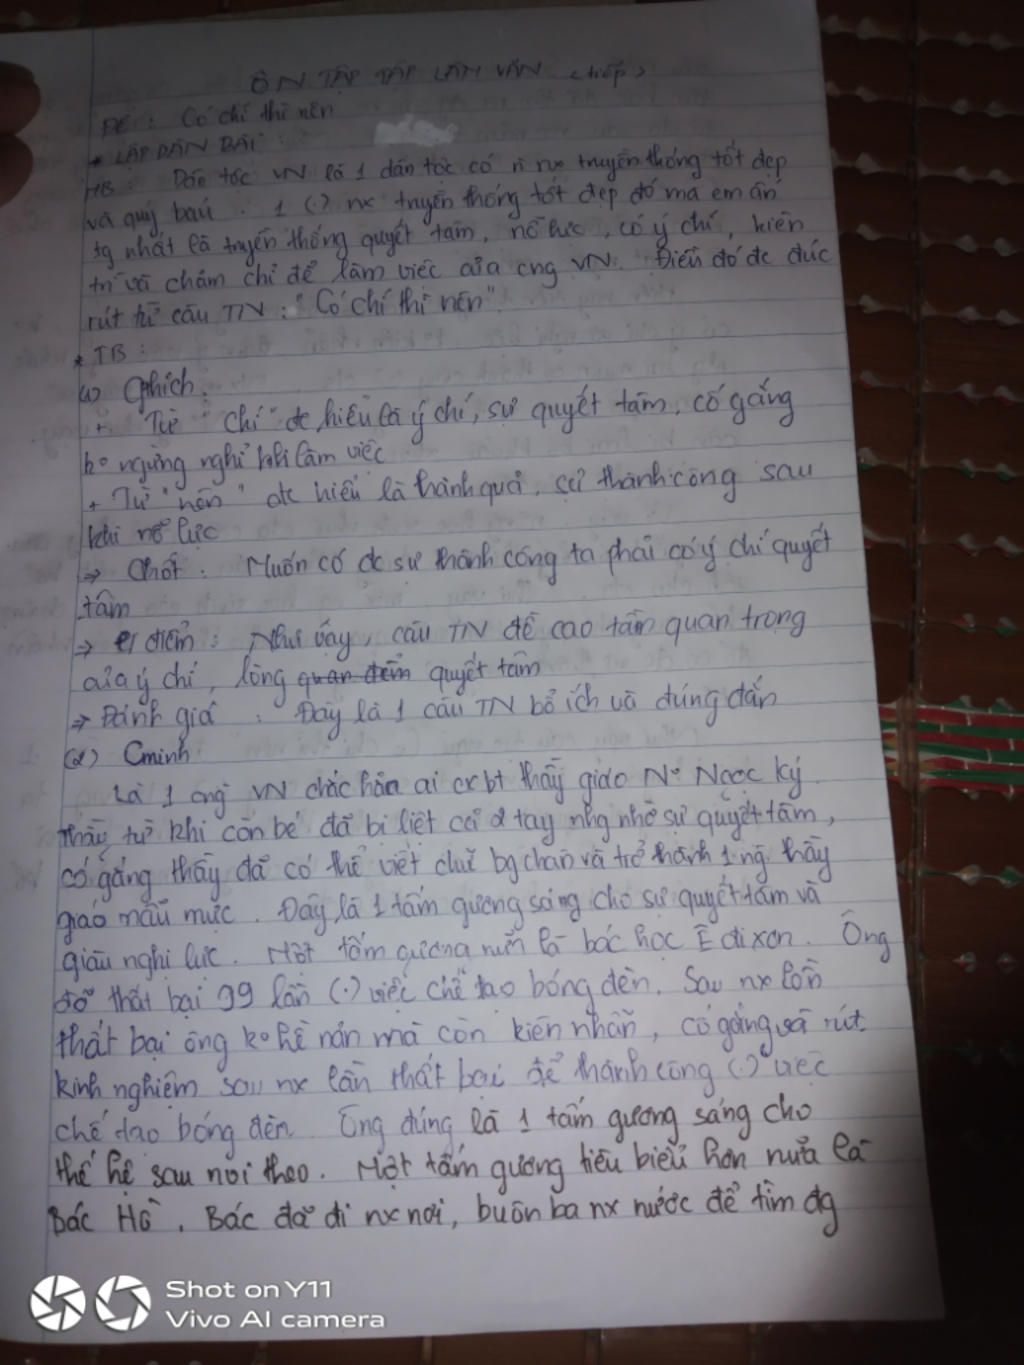 ÔN TẬP TẬP LÀM VĂN (tiếp)
ĐỀ : Có chí thì nên
* LẬP DÀN BÀI
MB : Dân tộc VN là 1 dân tộc có n nx truyền thống tốt đẹp
và quý báu . 1 (.) nx truyền thống tốt đẹp đó mà em ấn
tg nhất là truyền thống quyết tâm, nỗ lực, có ý chí, kiên
trì và chăm chỉ để làm việc của cng VN. Điều đó đc đúc
rút từ câu TN : "Có chí thì nên".
* TB :
(1) Gthích.
+ Từ "chí" đc hiểu là ý chí, sự quyết tâm, cố gắng
ko ngừng nghỉ khi làm việc
+ Từ "nên" đc hiểu là thành quả, sự thành công sau
khi nỗ lực
⇒ Chốt : Muốn có đc sự thành công ta phải có ý chí quyết
tâm
⇒ điểm : Như vậy, câu TN đề cao tầm quan trọng
của ý chí, lòng quan điểm quyết tâm
⇒ Đánh giá : Đây là 1 câu TN bổ ích và đúng đắn
(2) Cminh
Là 1 cng VN chắc hẳn ai cx bt thầy giáo Ng Ngọc Ký.
Thầy từ khi còn bé đã bị liệt cả 2 tay nhg nhờ sự quyết tâm,
cố gắng thầy đã có thể viết chữ bg chân và trở thành 1 ng thầy
giáo mẫu mực. Đây là 1 tấm gương sáng cho sự quyết tâm và
giàu nghị lực. Một tấm gương nữa là bác học Ê đi xơn. Ông
đã thất bại 99 lần (.) việc chế tạo bóng đèn. Sau nx lần
thất bại ông ko hề nản mà còn kiên nhẫn, cố gắng và rút
kinh nghiệm sau nx lần thất bại để thành công (.) việc
chế tạo bóng đèn. Ông đúng là 1 tấm gương sáng cho
thế hệ sau noi theo. Một tấm gương tiêu biểu hơn nữa là
Bác Hồ. Bác đã đi nx nơi, buôn ba nx nước để tìm đg
Shot on Y11
Vivo AI camera